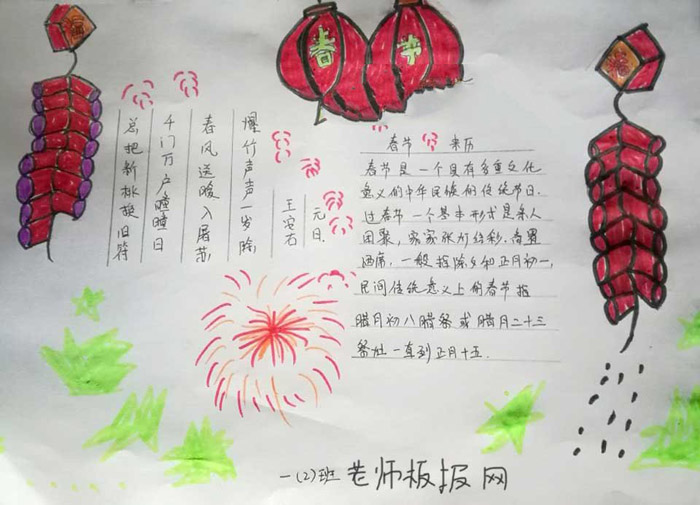 福
春节
福
元日
王安石
爆竹声声一岁除
春风送暖入屠苏
千门万户瞳瞳日
总把新桃换旧符
春节 来历
春节是一个具有多重文化
意义的中华民族的传统节日.
过春节一个基本形式是亲人
团聚，家家张灯结彩，备置
酒席，一般指除夕和正月初一，
民间传统意义上的春节指
腊月初八腊祭或腊月二十三
祭灶一直到正月十五.
一(2)班 老师板报网